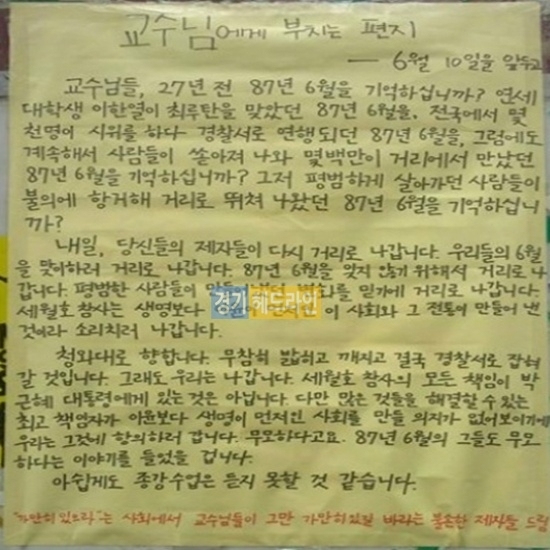 교수님에게 부치는 편지
— 6월 10일을 앞두고
교수님들, 27년 전 87년 6월을 기억하십니까? 연세
대학생 이한열이 최루탄을 맞았던 87년 6월을. 전국에서 몇
천명이 시위를 하다 경찰서로 연행되던 87년 6월을, 그럼에도
계속해서 사람들이 쏟아져 나와 몇백만이 거리에서 만났던
87년 6월을 기억하십니까? 그저 평범하게 살아가던 사람들이
불의에 항거해 거리로 뛰쳐 나왔던 87년 6월을 기억하십니
까?
내일, 당신들의 제자들이 다시 거리로 나갑니다. 우리들의 6월
을 맞이하러 거리로 나갑니다. 87년 6월을 잊지 않기 위해서 거리로 나
갑니다. 평범한 사람들이 변화를 믿기에 거리로 나갑니다.
세월호 참사는 생명보다 이 사회와 그 전통이 만들어 낸
것이라 소리치러 나갑니다.
경기헤드라인
청와대로 향합니다. 무참히 밟히고 깨지고 결국 경찰서로 잡혀
갈 것입니다. 그래도 우리는 나갑니다. 세월호 참사의 모든 책임이 박
근혜 대통령에게 있는 것은 아닙니다. 다만 많은 것들을 해결할 수 있는
최고 책임자가 이윤보다 생명이 먼저인 사회를 만들 의지가 없어보이기에
우리는 그것에 항의하러 갑니다. 무모하다고요. 87년 6월의 그들도 무모
하다는 이야기를 들었을 겁니다.
아쉽게도 종강수업은 듣지 못할 것 같습니다.
"가만히 있으라"는 사회에서 교수님들이 그만 가만히 있길 바라는 불손한 제자들 드림